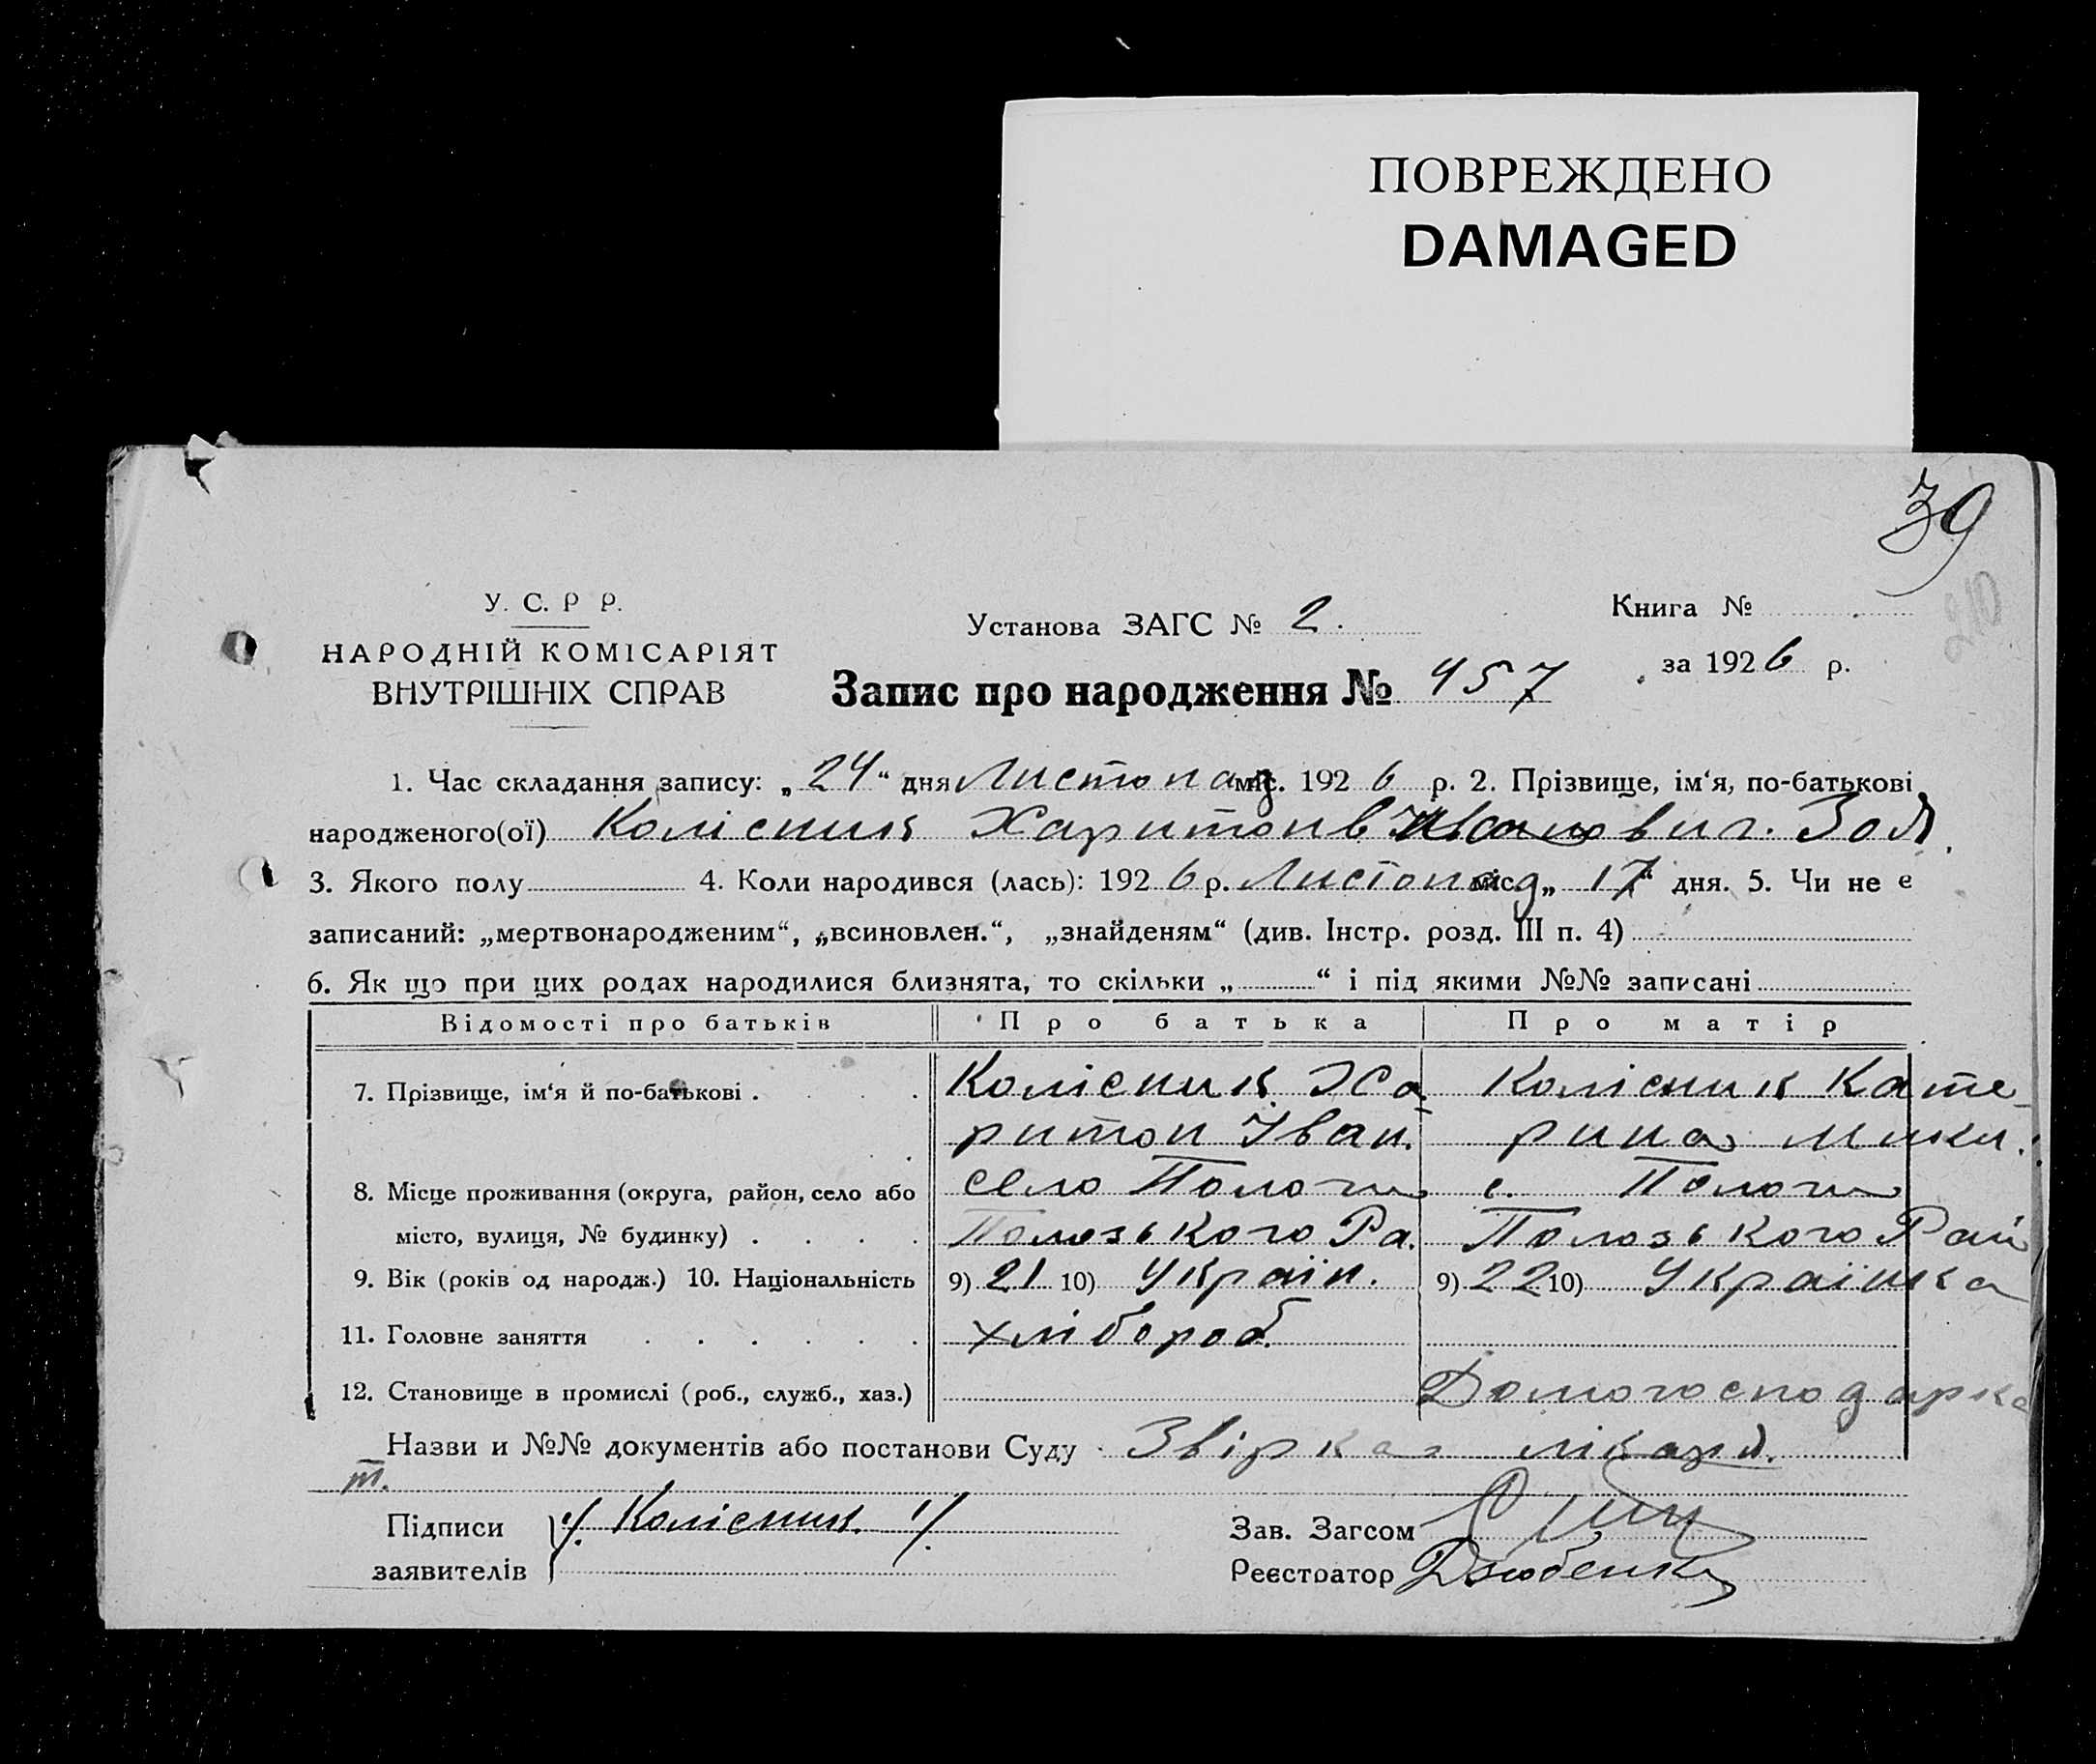 ПОВРЕЖДЕНО
DAMAGED
39
210
У. С. Р Р.
НАРОДНІЙ КОМІСАРІЯТ
ВНУТРІШНІХ СПРАВ
Установа ЗАГС № 2.
Книга №
за 1926 р.
Запис про народження № 457
1. Час складання запису: „24“ дня Листопад міс. 1926 р. 2. Прізвище, ім‘я, по-батькові
народженого(ої) Колісник Харитонів Зоя
3. Якого полу 4. Коли народився (лась): 1926 р. Листопад міс. „17“ дня. 5. Чи не є
записаний: „мертвонародженим“, „всиновлен.“, „знайденям“ (див. Інстр. розд. III п. 4)
6. Як що при цих родах народилися близнята, то скільки „ “ і під якими №№ записані
Відомості про батьків Про батька Про матір
7. Прізвище, ім‘я й по-батькові . Колісник Ха Колісник Кате-
ритон Іван. рина Мики.
8. Місце проживання (округа, район, село або село Пологи с. Пологи
місто, вулиця, № будинку) Полозького Ра. Полозького Рай
9. Вік (років од народж.) 10. Національність 9) 21 10) Україн. 9) 22 10) Українка
11. Головне заняття хлібороб.
12. Становище в промислі (роб., служб., хаз.) Домогосподарка
Назви и №№ документів або постанови Суду
т.
Підписи
заявителів
/ Колісник /
Зав. Загсом
Реєстратор Дзюбенко